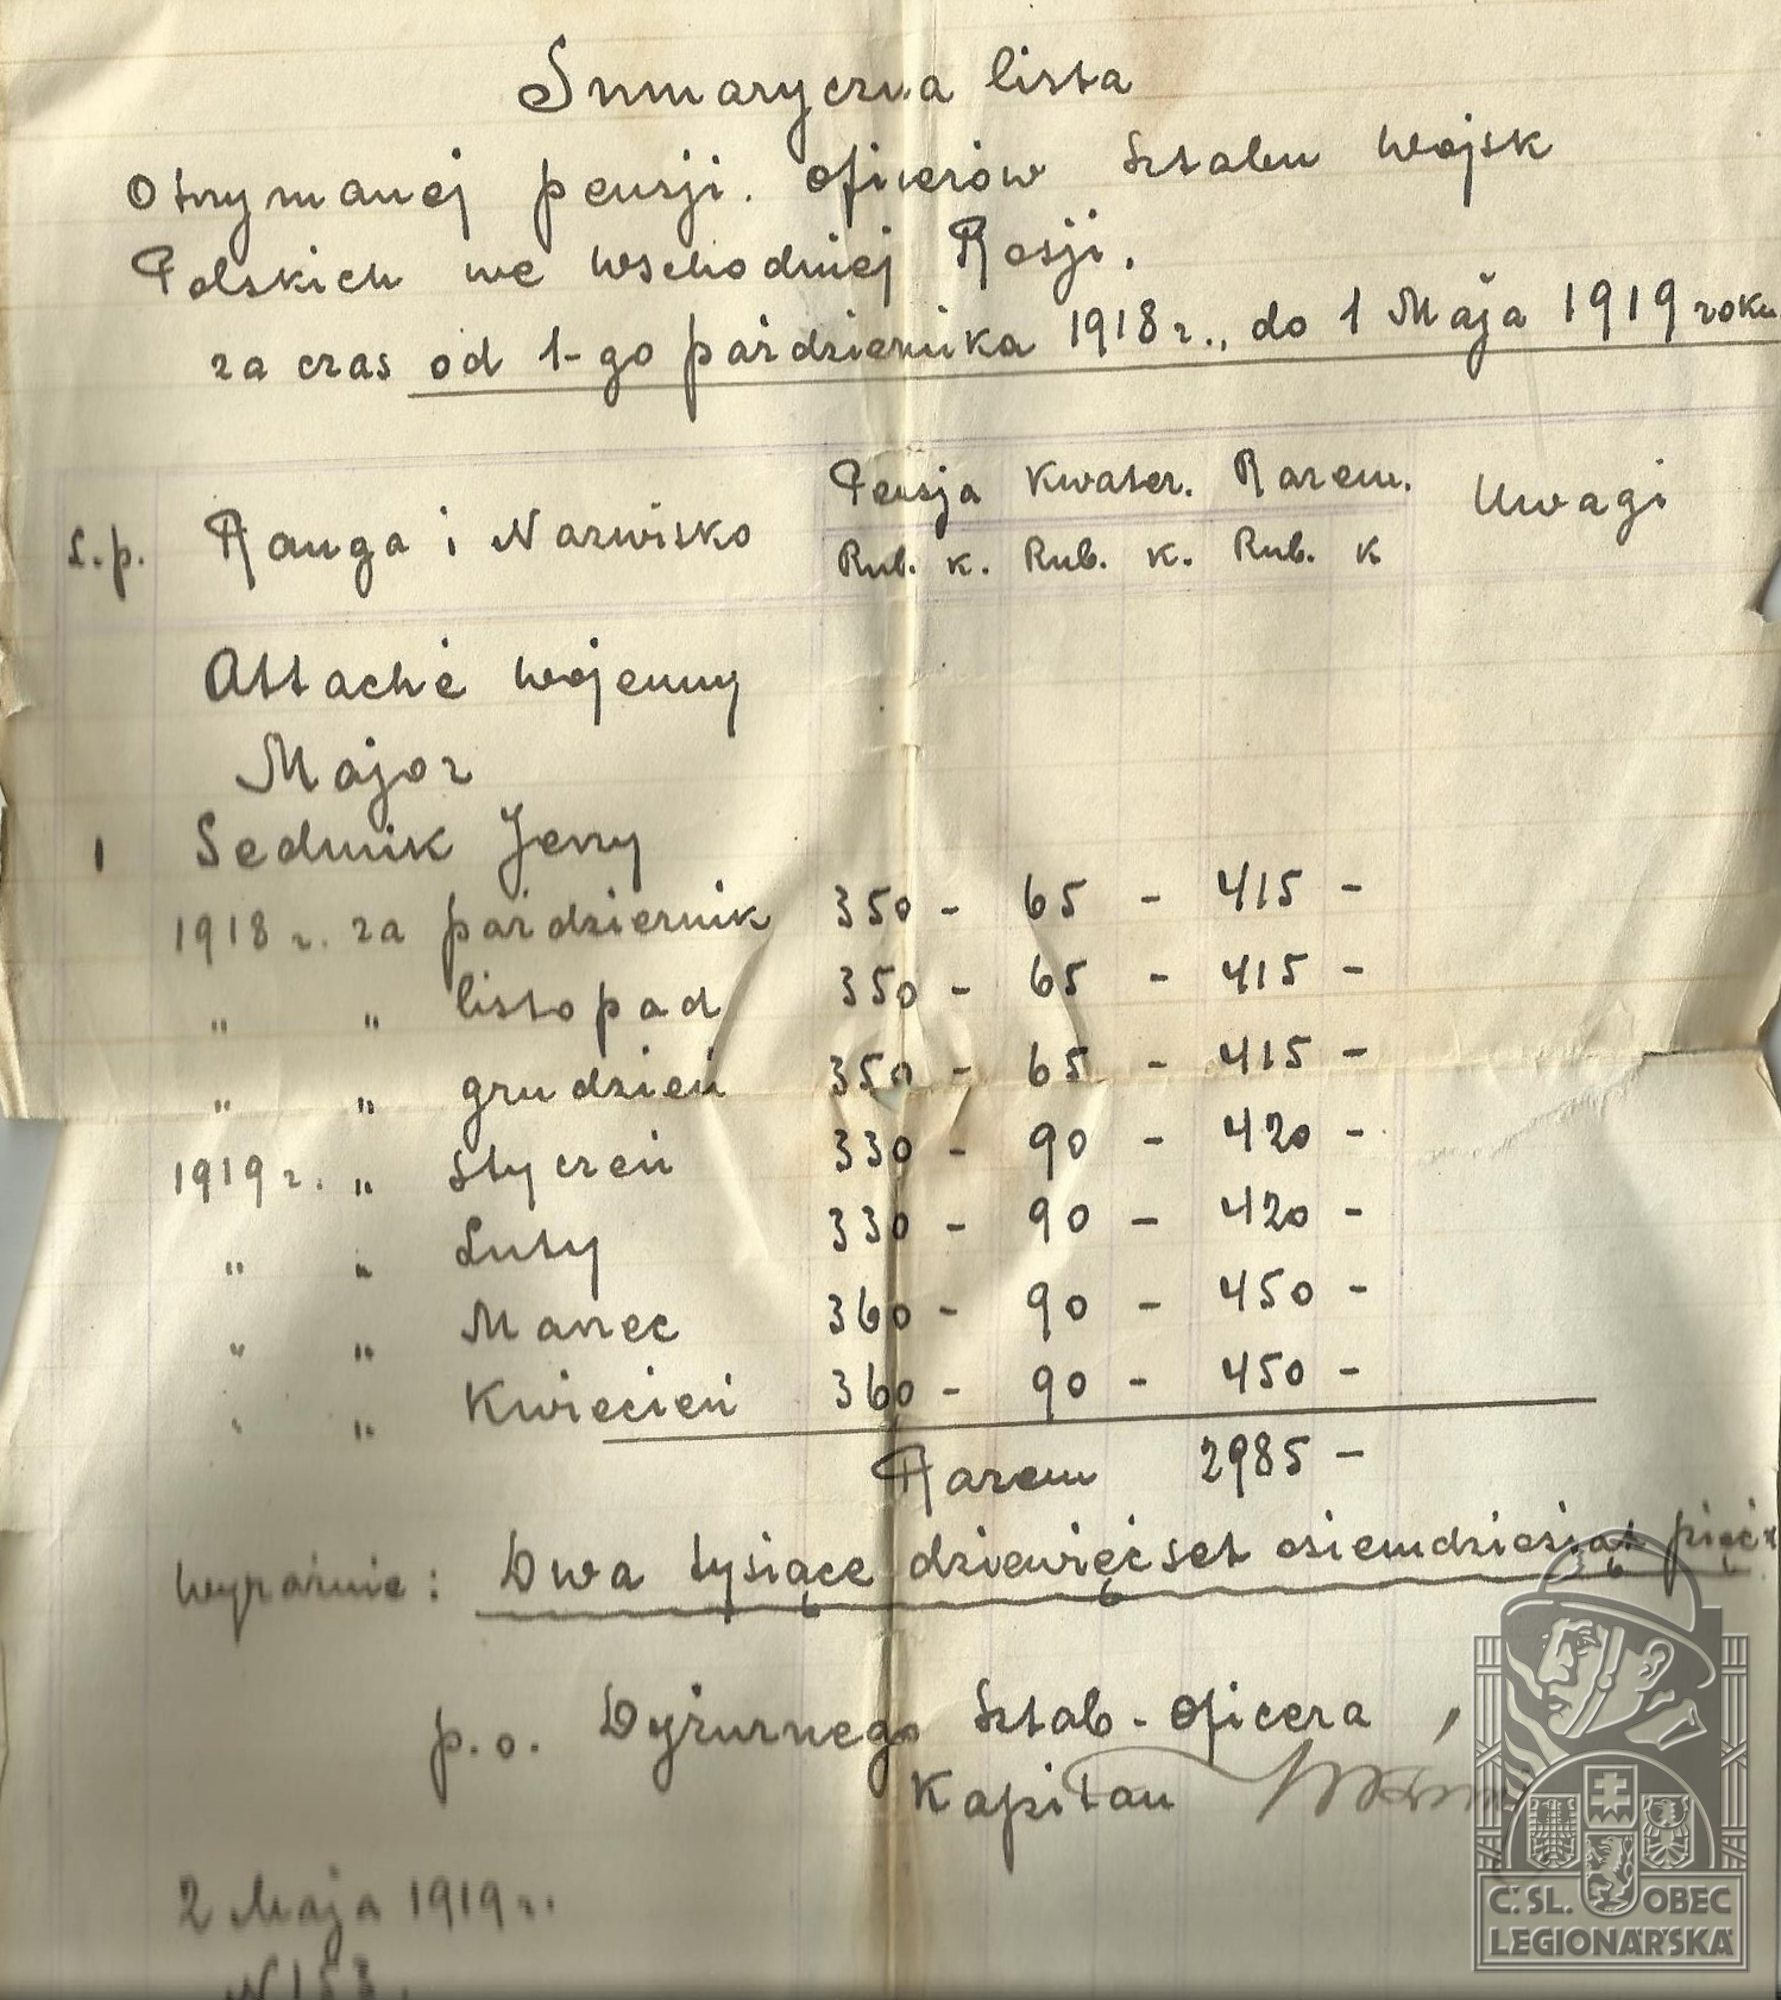 Sumaryczna lista
Otrzymanej pensji. oficerów Sztabu Wojsk
Polskich we wschodniej Rosji.
za czas od 1-go października 1918 r., do 1 Maja 1919 roku
L.p. Ranga i Nazwisko Pensja Kwater. Razem. Uwagi
Rub. k. Rub. k. Rub. k
Attaché wojenny
Major
1 Sedmik Jerzy
1918 r. za październik 350 - 65 - 415 -
" " listopad 350 - 65 - 415 -
" " grudzień 350 - 65 - 415 -
1919 r. " styczeń 330 - 90 - 420 -
" " Luty 330 - 90 - 420 -
" " Marzec 360 - 90 - 450 -
" " Kwiecień 360 - 90 - 450 -
Razem 2985 -
Wyraźnie: Dwa tysiące dziewięćset osiemdziesiąt pięć
p.o. Dyżurnego Sztab-Oficera,
Kapitan
2 Maja 1919 r.
N 153.
Č. SL. OBEC
LEGIONÁŘSKÁ